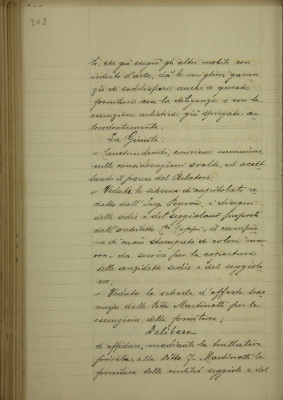 208
ti, che già eseguì gli altri mobili con
intenti d'arte, dà le migliori garan
zie di soddisfare anche a questa
fornitura con la diligenza e con la
esecuzione artistica già spiegate an
tecedentemente.
La Giunta
Condividendo, ed accet
tando il parere del Relatore;
Veduto lo schema di capitolato re
datto dall'Ing. Peyron, i disegni
delle sedie e del seggiolone proposti
dall'architetto Ceppi, il campio
ne di cuoio stampato di colore mar
rone da servire per la copertura
delle anzidette sedie e del seggiolo
ne;
Veduta la scheda d'offerta tras
messa dalla Ditta Martinotti per la
esecuzione della fornitura;
Delibera
di affidare, mediante la trattativa
privata, alla Ditta F. Martinotti la
fornitura delle seggiole e del